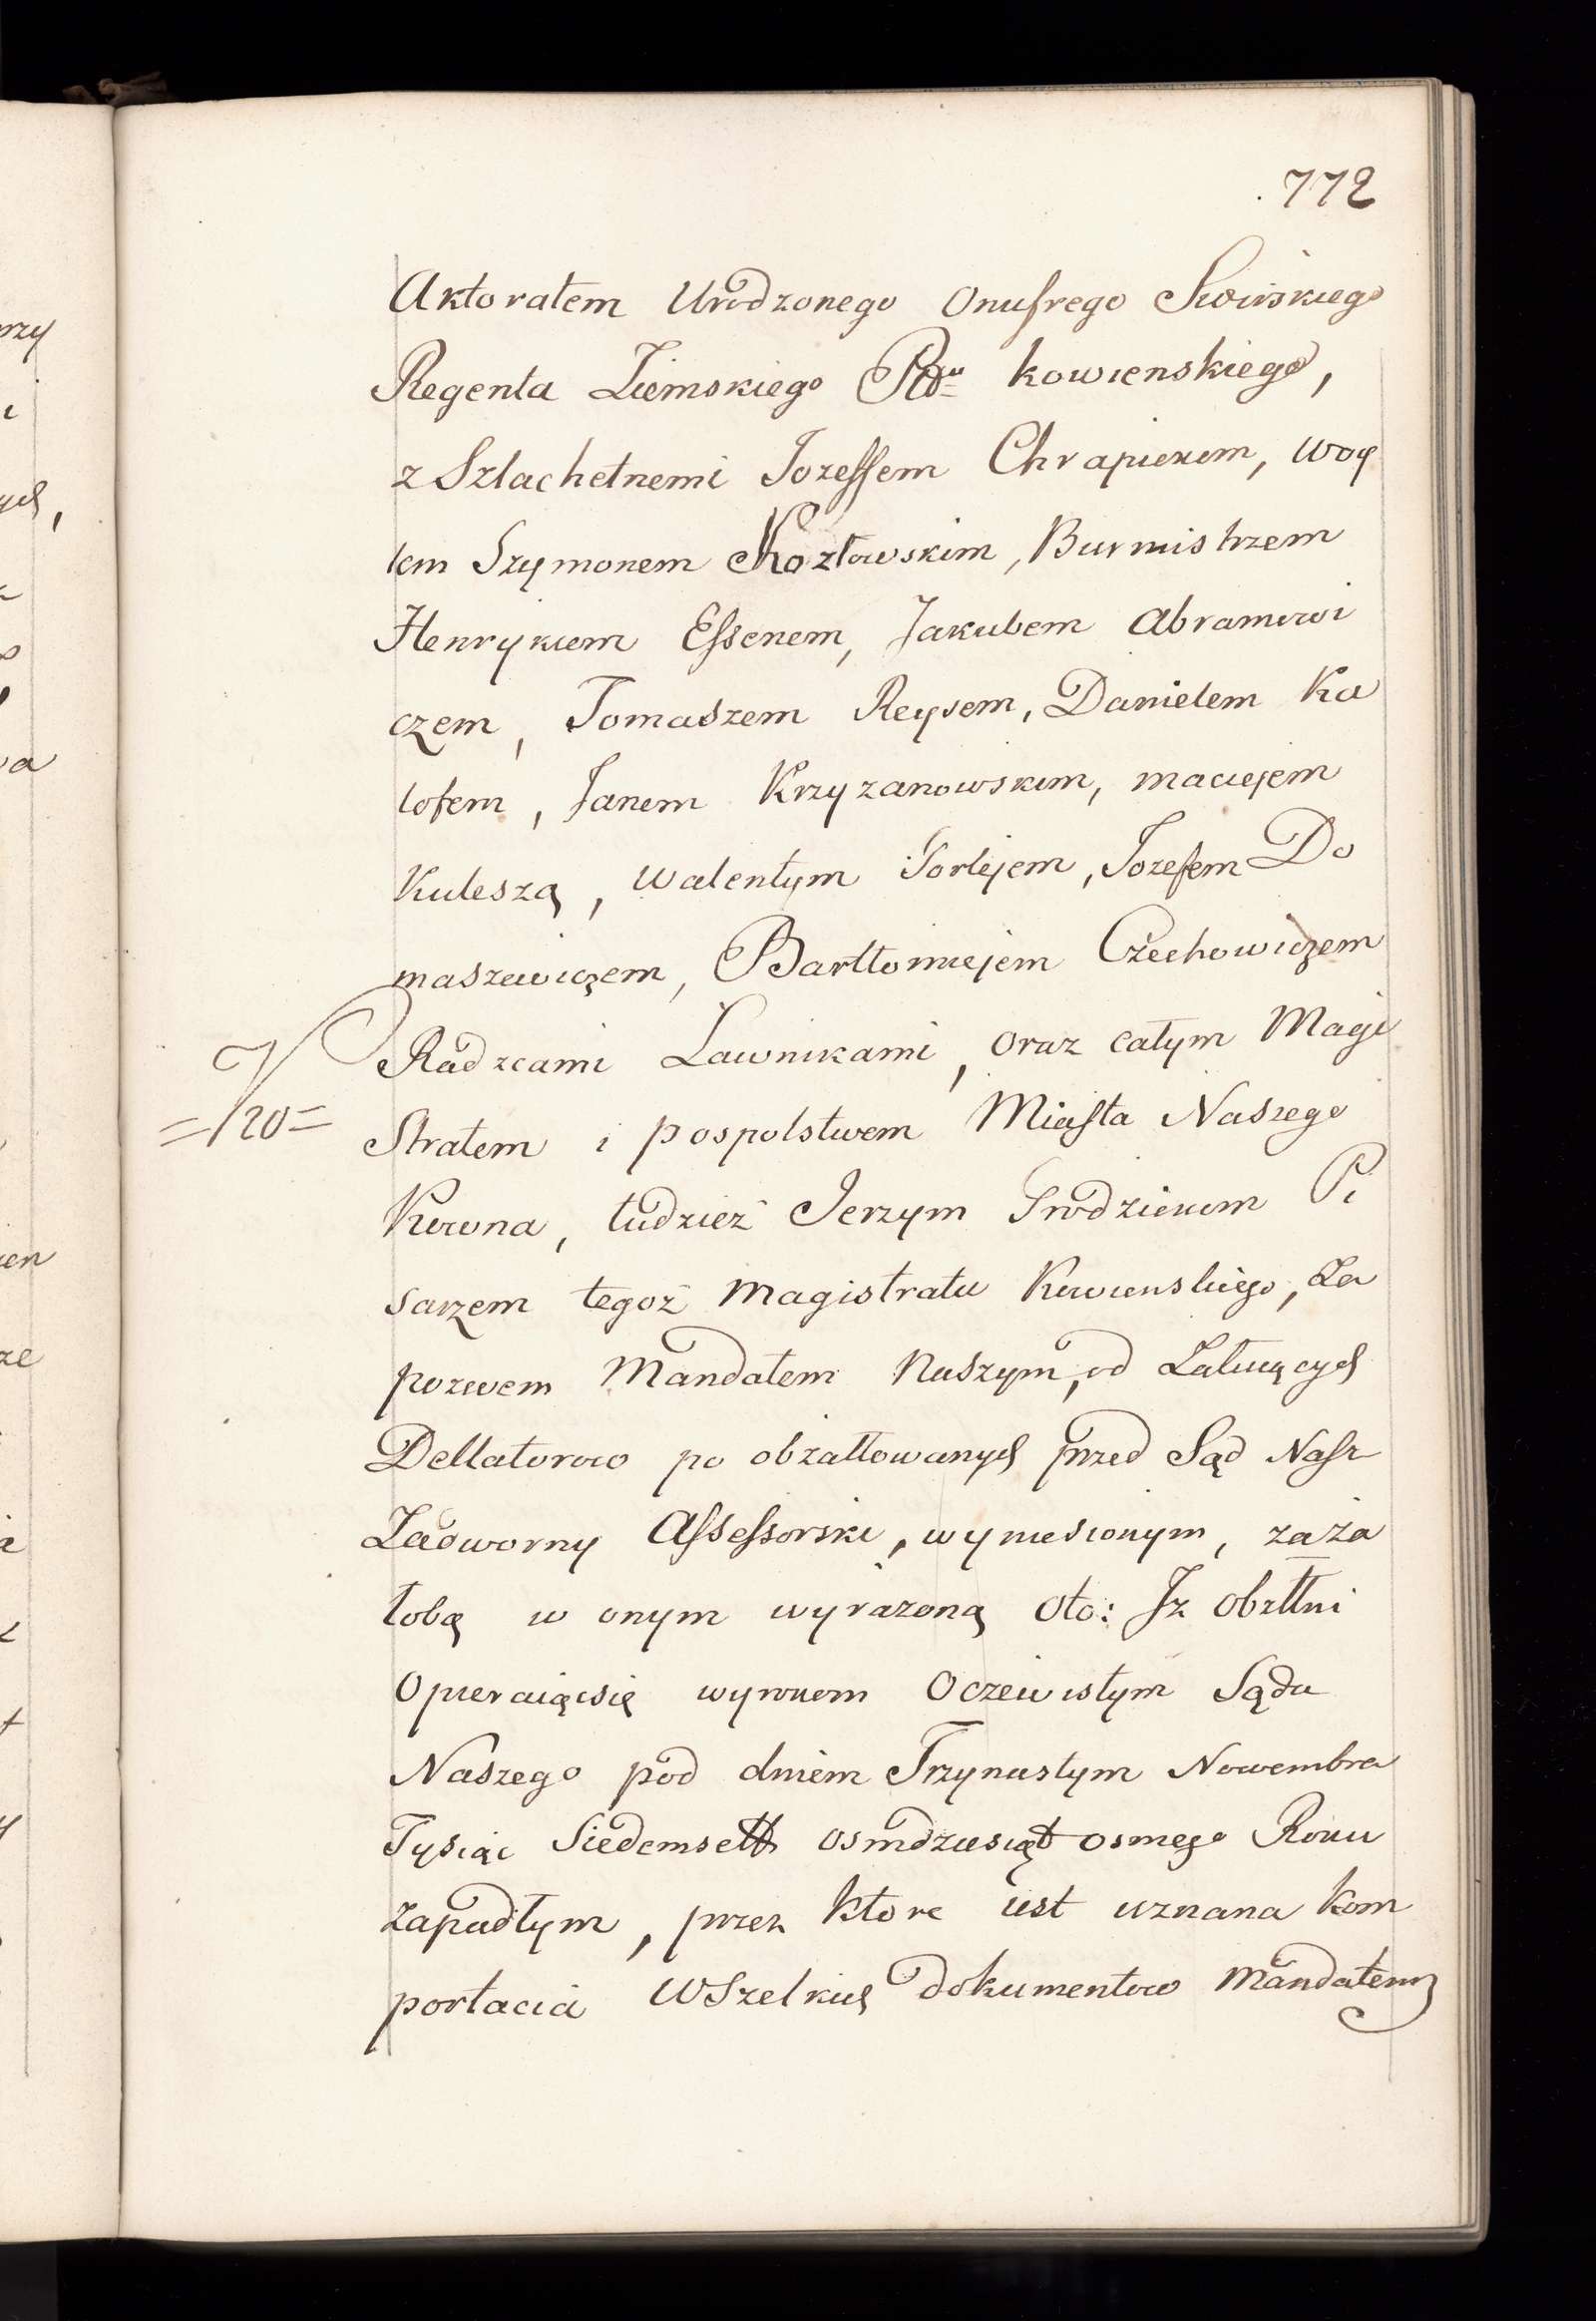 772
Aktoratem Urodzonego Onufrego Swirskiego
Regenta Ziemskiego Ptu kowienskiego,
z Szlachetnemi Jozeffem Chrapickem, Woy
tem Szymonem Kozłowskim, Burmistrzem
Henrykiem Essenem, Jakubem Abramowi
czem, Tomaszem Reysem, Danielem Ka
lofem, Janem Krzyzanowskim, maciejem
Kuleszą, Walentym Gorlejem, Jozefem Do
maszewiczem, Bartłomiejem Czechowiczem
Radzcami Ławnikami, oraz całym Magi
stratem i pospolstwem Miasta Naszego
Kowna, tudzież Jerzym Grodzickem Pi
sarzem tegoż Magistratu Kowienskiego, Za
pozwem Mandatem Naszym, od Załuiących
Dellatorow po obżałłowanych przed Sąd Nasz
Zadworny Assessorski, wyniesionym, za ża
łobą w onym wyrazoną oto: Iż obżłłni
Opieraiącsię wyrokiem Oczewistym Sądu
Naszego pod dniem Trzynastym Nowembra
Tysiąc Siedemset osmdziesiąt osmego Roku
Zapadłym, przez ktore iest uznana kom
portacia Wszelkich dokumentow Mandatem
=120=